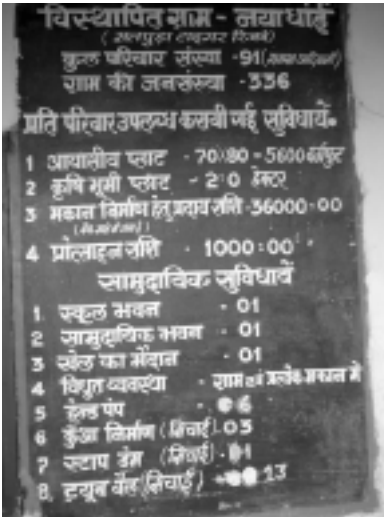 विस्थापित ग्राम - नयाधांई
( सतपुड़ा टाइगर रिजर्व )
कुल परिवार संख्या - 91
ग्राम की जनसंख्या - 336
प्रति परिवार उपलब्ध करायी गई सुविधायें
1 आवासीय प्लाट - 70X80 = 5600 वर्गफुट
2 कृषि भूमी प्लाट - 2:0 हेक्टर
3 मकान निर्माण हेतु प्रदाय राशि - 36000=00
4 प्रोत्साहन राशि - 1000:00
सामुदायिक सुविधायें
1. स्कूल भवन - 01
2 सामुदायिक भवन - 01
3 खेल का मैदान - 01
4 विधुत व्यवस्था - ग्राम एवं प्रत्येक मकान में
5 हेन्ड पंप - 6
6 कुँआ निर्माण (सिंचाई) 03
7 स्टाप डेम (सिंचाई) - 1
8. ट्यूब वैल (सिंचाई) 13